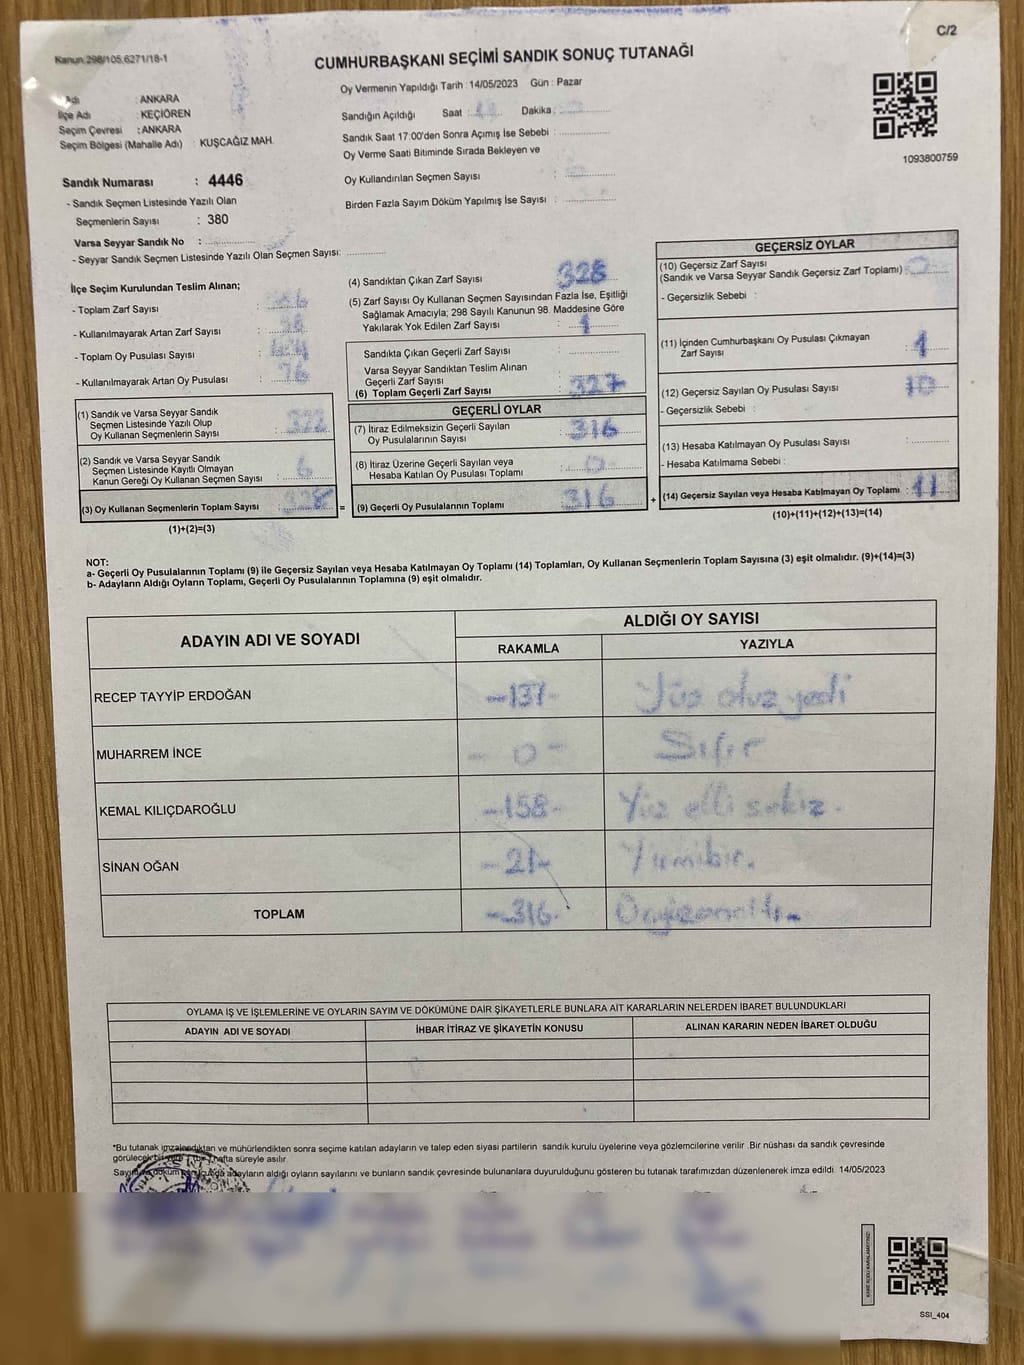 C/2
Kanun.298/105,6271/18-1
CUMHURBAŞKANI SEÇİMİ SANDIK SONUÇ TUTANAĞI
Oy Vermenin Yapıldığı Tarih : 14/05/2023 Gün : Pazar
Adı : ANKARA
İlçe Adı : KEÇİÖREN
Seçim Çevresi : ANKARA
Seçim Bölgesi (Mahalle Adı) : KUŞCAĞIZ MAH.
Sandığın Açıldığı Saat : Dakika :
Sandık Saat 17:00'den Sonra Açımış İse Sebebi :
Oy Verme Saati Bitiminde Sırada Bekleyen ve
Oy Kullandırılan Seçmen Sayısı :
Birden Fazla Sayım Döküm Yapılmış İse Sayısı :
1093800759
Sandık Numarası : 4446
- Sandık Seçmen Listesinde Yazılı Olan
Seçmenlerin Sayısı : 380
Varsa Seyyar Sandık No :
- Seyyar Sandık Seçmen Listesinde Yazılı Olan Seçmen Sayısı:
İlçe Seçim Kurulundan Teslim Alınan;
- Toplam Zarf Sayısı :
- Kullanılmayarak Artan Zarf Sayısı :
- Toplam Oy Pusulası Sayısı :
- Kullanılmayarak Artan Oy Pusulası : 76
(1) Sandık ve Varsa Seyyar Sandık
Seçmen Listesinde Yazılı Olup
Oy Kullanan Seçmenlerin Sayısı : 322
(2) Sandık ve Varsa Seyyar Sandık
Seçmen Listesinde Kayıtlı Olmayan
Kanun Gereği Oy Kullanan Seçmen Sayısı : 6
(3) Oy Kullanan Seçmenlerin Toplam Sayısı : 328 =
(1)+(2)=(3)
(4) Sandıktan Çıkan Zarf Sayısı : 328
(5) Zarf Sayısı Oy Kullanan Seçmen Sayısından Fazla İse, Eşitliği
Sağlamak Amacıyla; 298 Sayılı Kanunun 98. Maddesine Göre
Yakılarak Yok Edilen Zarf Sayısı : 1
Sandıkta Çıkan Geçerli Zarf Sayısı :
Varsa Seyyar Sandıktan Teslim Alınan
Geçerli Zarf Sayısı
(6) Toplam Geçerli Zarf Sayısı : 327
GEÇERLİ OYLAR
(7) İtiraz Edilmeksizin Geçerli Sayılan
Oy Pusulalarının Sayısı : 316
(8) İtiraz Üzerine Geçerli Sayılan veya
Hesaba Katılan Oy Pusulası Toplamı : 0
(9) Geçerli Oy Pusulalarının Toplamı : 316 +
GEÇERSİZ OYLAR
(10) Geçersiz Zarf Sayısı
(Sandık ve Varsa Seyyar Sandık Geçersiz Zarf Toplamı) : 0
- Geçersizlik Sebebi :
(11) İçinden Cumhurbaşkanı Oy Pusulası Çıkmayan
Zarf Sayısı : 1
(12) Geçersiz Sayılan Oy Pusulası Sayısı : 10
- Geçersizlik Sebebi :
(13) Hesaba Katılmayan Oy Pusulası Sayısı :
- Hesaba Katılmama Sebebi :
(14) Geçersiz Sayılan veya Hesaba Katılmayan Oy Toplamı : 11
(10)+(11)+(12)+(13)=(14)
NOT:
a- Geçerli Oy Pusulalarının Toplamı (9) ile Geçersiz Sayılan veya Hesaba Katılmayan Oy Toplamı (14) Toplamları, Oy Kullanan Seçmenlerin Toplam Sayısına (3) eşit olmalıdır. (9)+(14)=(3)
b- Adayların Aldığı Oyların Toplamı, Geçerli Oy Pusulalarının Toplamına (9) eşit olmalıdır.
ADAYIN ADI VE SOYADI
ALDIĞI OY SAYISI
RAKAMLA YAZIYLA
RECEP TAYYİP ERDOĞAN -137- Yüz otuz yedi
MUHARREM İNCE - 0 - Sıfır
KEMAL KILIÇDAROĞLU -158- Yüz elli sekiz.
SİNAN OĞAN -21- Yirmibir.
TOPLAM -316- Üçyüzonaltı
OYLAMA İŞ VE İŞLEMLERİNE VE OYLARIN SAYIM VE DÖKÜMÜNE DAİR ŞİKAYETLERLE BUNLARA AİT KARARLARIN NELERDEN İBARET BULUNDUKLARI
ADAYIN ADI VE SOYADI İHBAR İTİRAZ VE ŞİKAYETİN KONUSU ALINAN KARARIN NEDEN İBARET OLDUĞU
*Bu tutanak imzalandıktan ve mühürlendikten sonra seçime katılan adayların ve talep eden siyasi partilerin sandık kurulu üyelerine veya gözlemcilerine verilir .Bir nüshası da sandık çevresinde
görülecek bir yere hafta süreyle asılır.
adayların aldığı oyların sayılarını ve bunların sandık çevresinde bulunanlara duyurulduğunu gösteren bu tutanak tarafımızdan düzenlenerek imza edildi. 14/05/2023
SSI_404